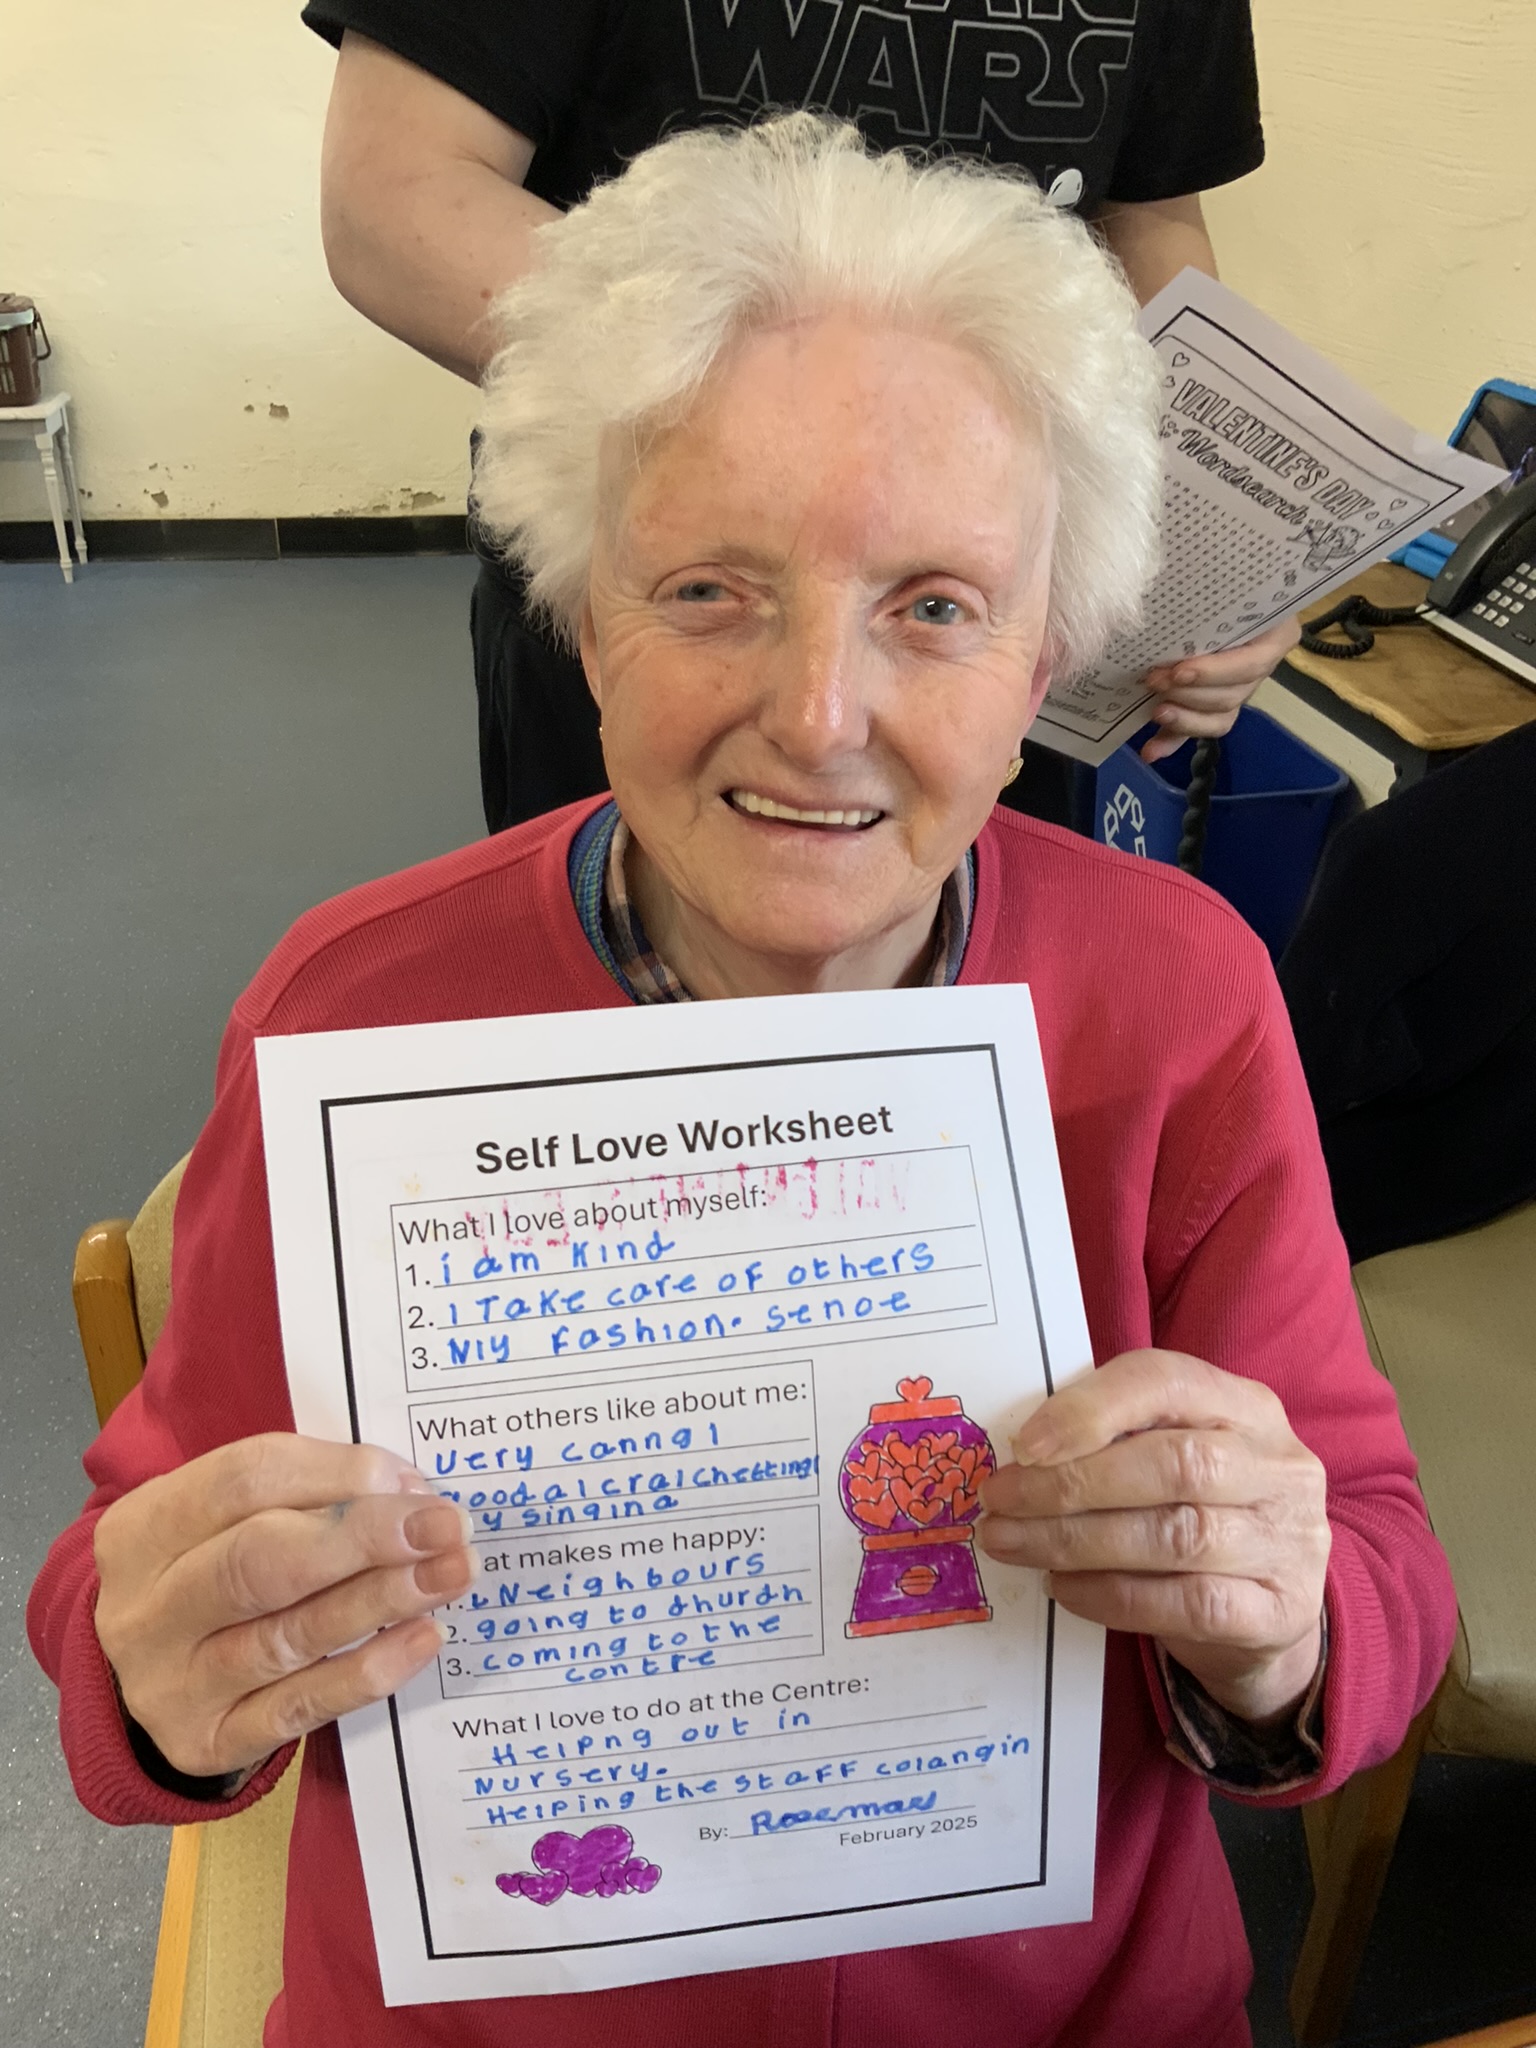 WARS
VALENTINE'S DAY
Wordsearch
Self Love Worksheet
What I love about myself:
1. i am kind
2. I Take care of others
3. My fashion. senoe
What others like about me:
Very canng I
good a I cral chetting
y singing
at makes me happy:
1. Neighbours
2. going to church
3. coming to the
contre
What I love to do at the Centre:
Helpng out in
Nursery.
Helping the staFF colangin
By: Rosemary
February 2025